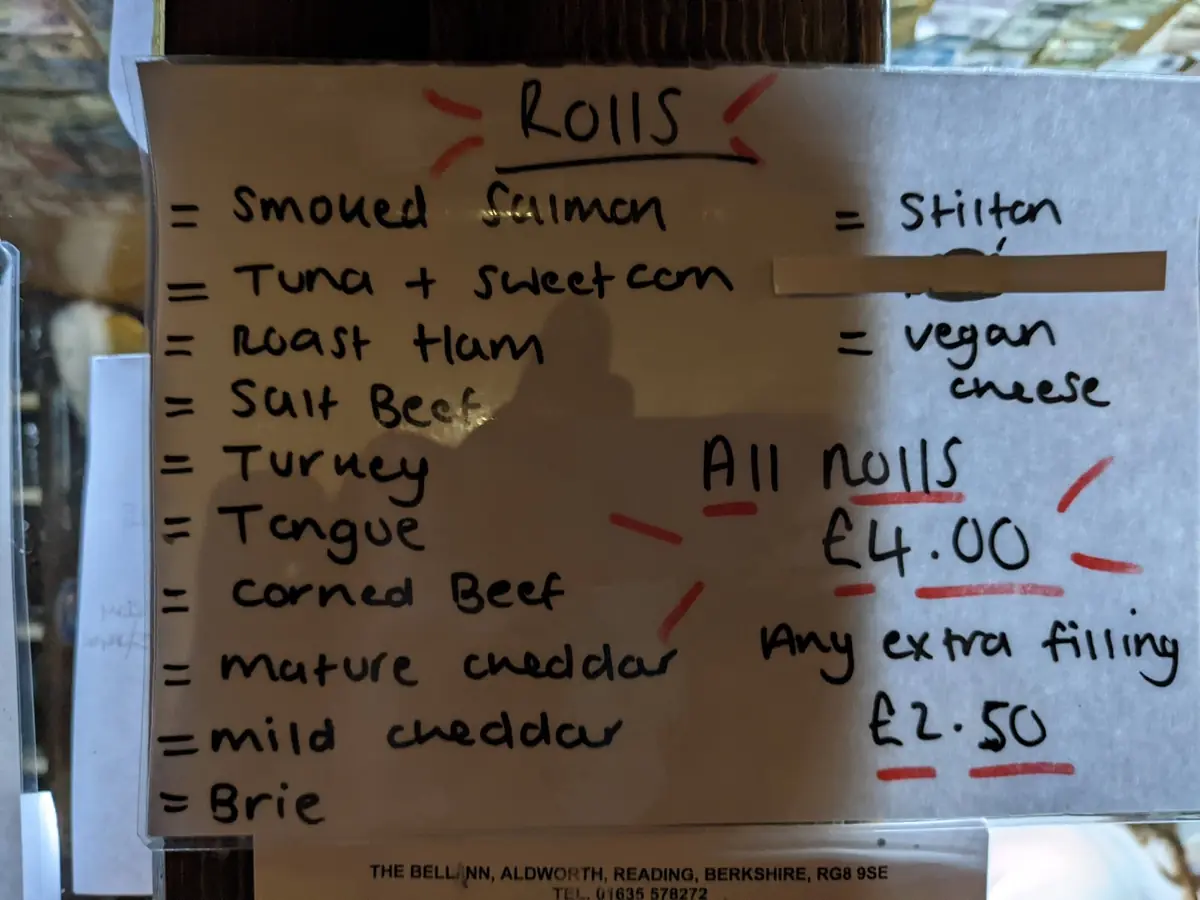 Rolls
= Smoked Salmon
= Tuna + sweetcorn
= Roast Ham
= Salt Beef
= Turkey
= Tongue
= corned Beef
= mature cheddar
= mild cheddar
= Brie
= Stilton
= vegan
cheese
All rolls
£4.00
Any extra filling
£2.50
THE BELL INN, ALDWORTH, READING, BERKSHIRE, RG8 9SE
TEL. 01635 578272